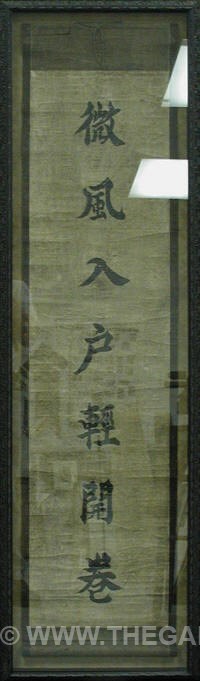 微風入户輕開卷
© WWW.THEGA